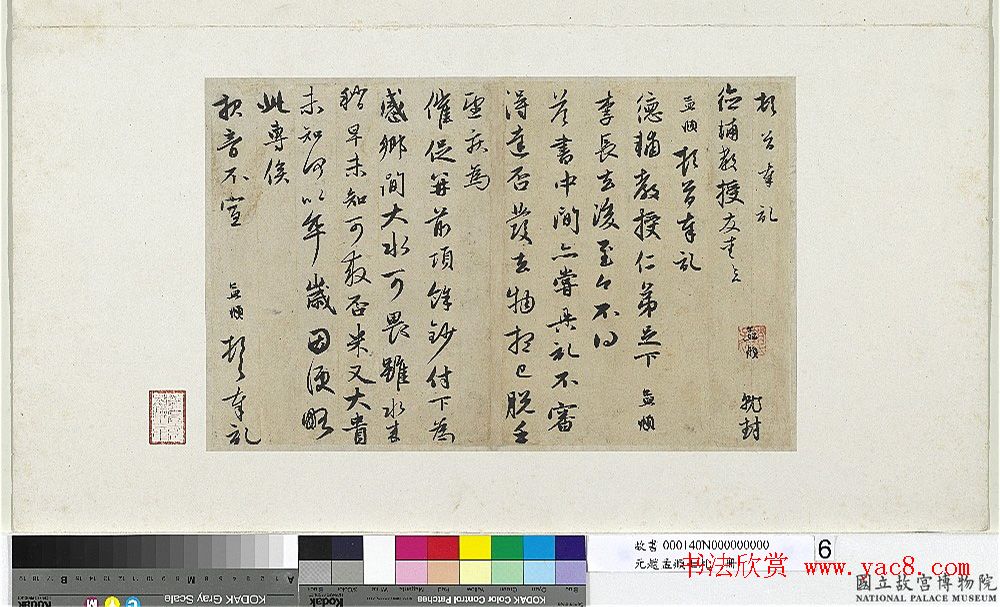 頓首奉記
德輔教授友愛足
孟頫
就封
孟頫頓首奉記
德輔教授仁弟足下 孟頫
李長去後至今不得
答書中間亦嘗具記不審
得達否發去物想已脫手
望疾為
催促并前項餘鈔付下為
感鄉間大水可畏雖水來
稍早未知可救否米又大貴
未知何以卒歲因便略
此專俟
報音不宣
孟頫頓首奉記
故書 000140N000000000
6
元趙孟頫
书法欣赏 www.yac8.com
國立故宮博物院
NATIONAL PALACE MUSEUM
KODAK Gray Scale
KODAK Color Control Patches
Kodak